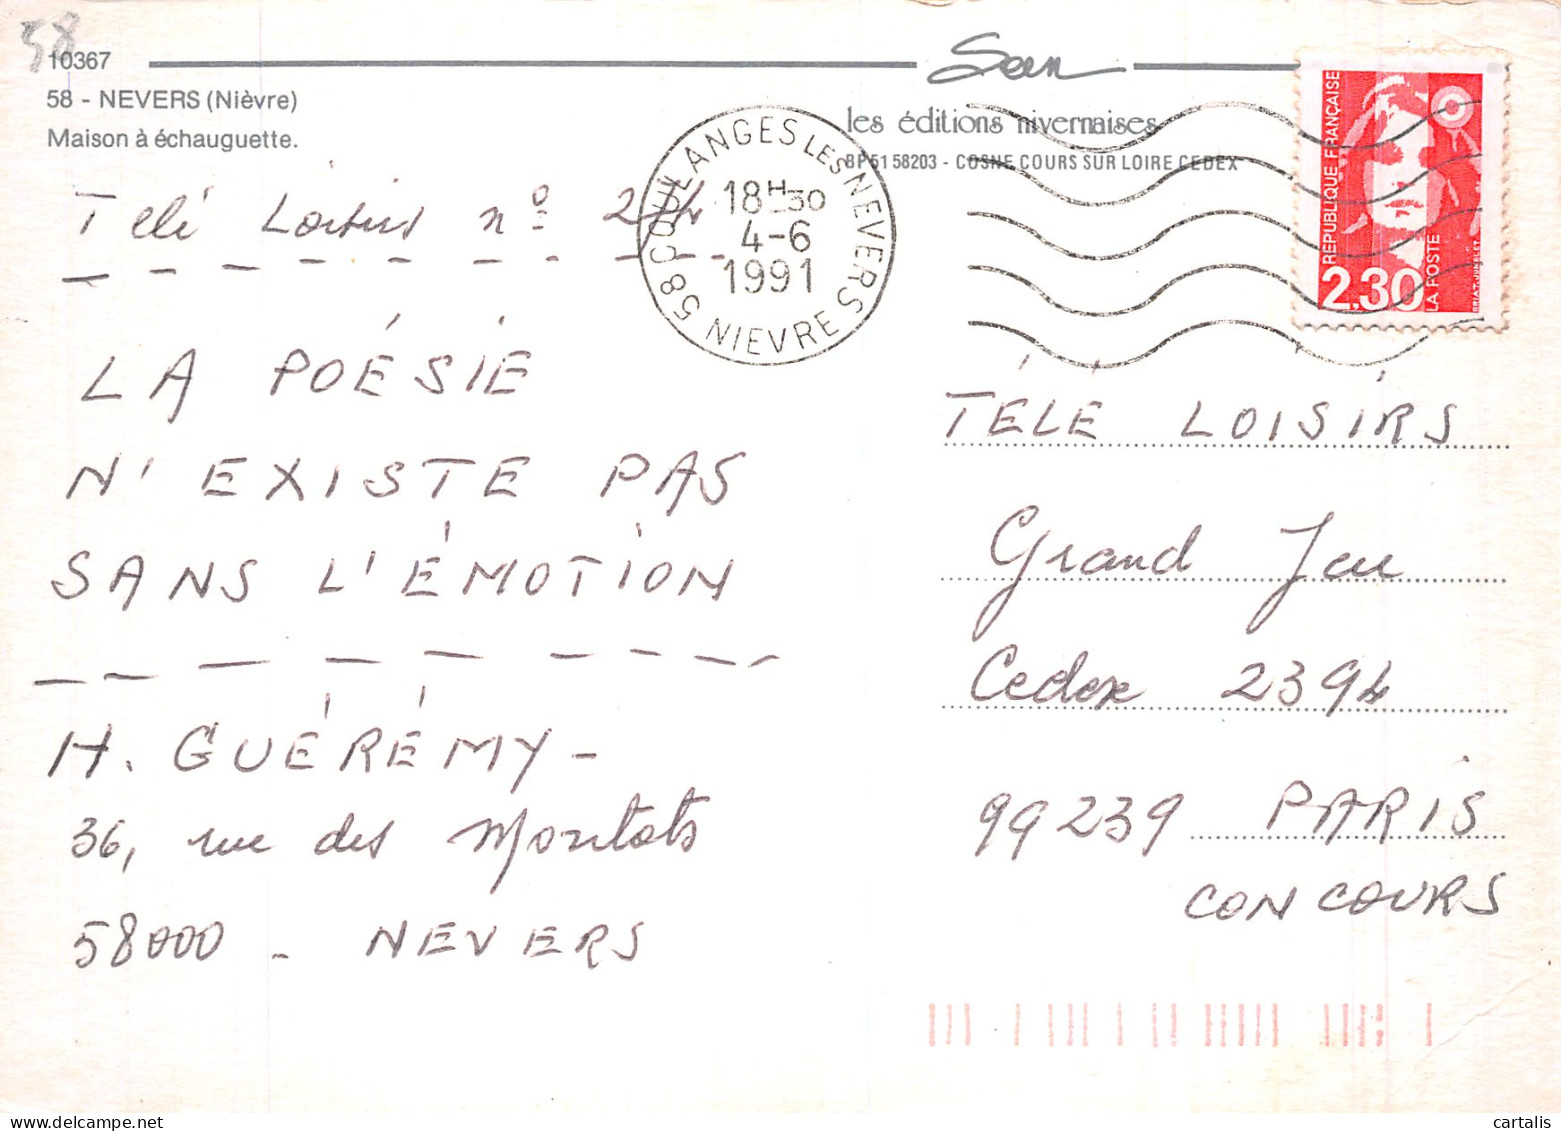 58
10367
58 - NEVERS (Nièvre)
Maison à échauguette.
les éditions nivernaises
BP 51 58203 - COSNE COURS SUR LOIRE CEDEX
58 COULANGES LES NEVERS
18H30
4-6
1991
NIEVRE
RÉPUBLIQUE FRANÇAISE
2.30
LA POSTE
Télé Loisirs nº
LA POÉSIE
N'EXISTE PAS
SANS L'ÉMOTION
H. GUÉRÉMY -
36, rue des Montots
58000 - NEVERS
TÉLÉ LOISIRS
Grand Jeu
Cedex 2394
99239 PARIS
CONCOURS
cartalis